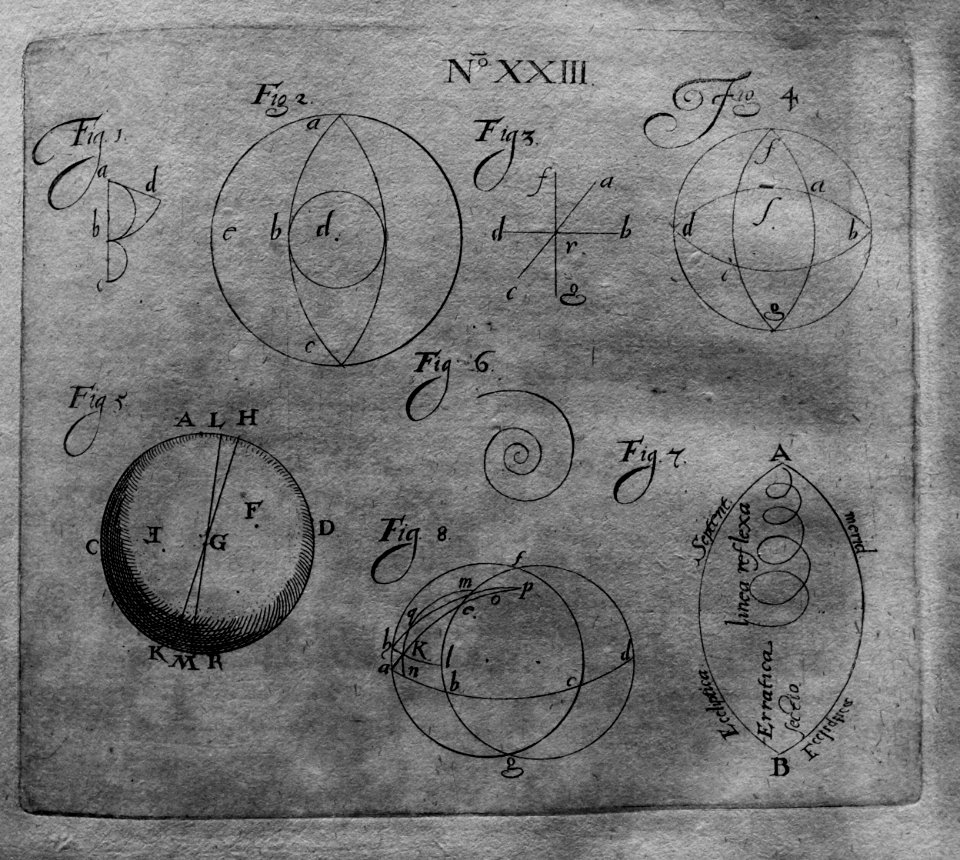 Nº XXIII.
Fig. 1.
a
d
b
c
Fig 2.
a
e
b
d.
c
Fig 3.
f
a
d
b
r
c
g
Fig 4
f
a
s
d
b
i
g
Fig 5
A L H
F
E
C
G
D
K M R
Fig 6
Fig. 7.
A
linea reflexa
merid
Ecliptica
Erratica
sectio
B
Fig. 8
f
m
p
q
e
o
h
K
l
d
a
n
b
c
g